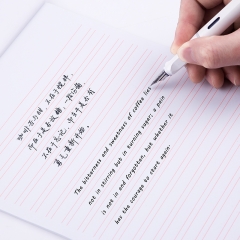 咖啡苦与甜，不在于搅拌，
而在于是否放糖；一段伤痛，
不在于忘记，而在于是否有
勇气重新开始。
The bitterness and sweetness of coffee lies
not in stirring but in turning sugar; a pain
is not in and forgotten, but whether it
has the courage to start again.